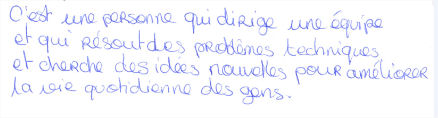 C'est une personne qui dirige une équipe
et qui résout des problèmes techniques
et cherche des idées nouvelles pour améliorer
la vie quotidienne des gens.